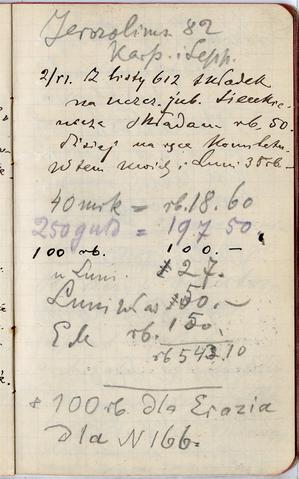 Jerozolims. 82
Karp. i Lepp.
2/VI. Z listy 612 składek
na uczcz. jub. Sienkie-
wicza składam rb. 50.
dzisiaj na ręce Komitetu
W tem moich i Luni 35 rb.-
40 mrk = rb. 18.60
250 guld = 197 50
100 rb. 100.-
u Luni. 27.
Luni 50.-
Ede rb. 150.
rb 543.10
100 rb. dla Erazia
Dla N 166.